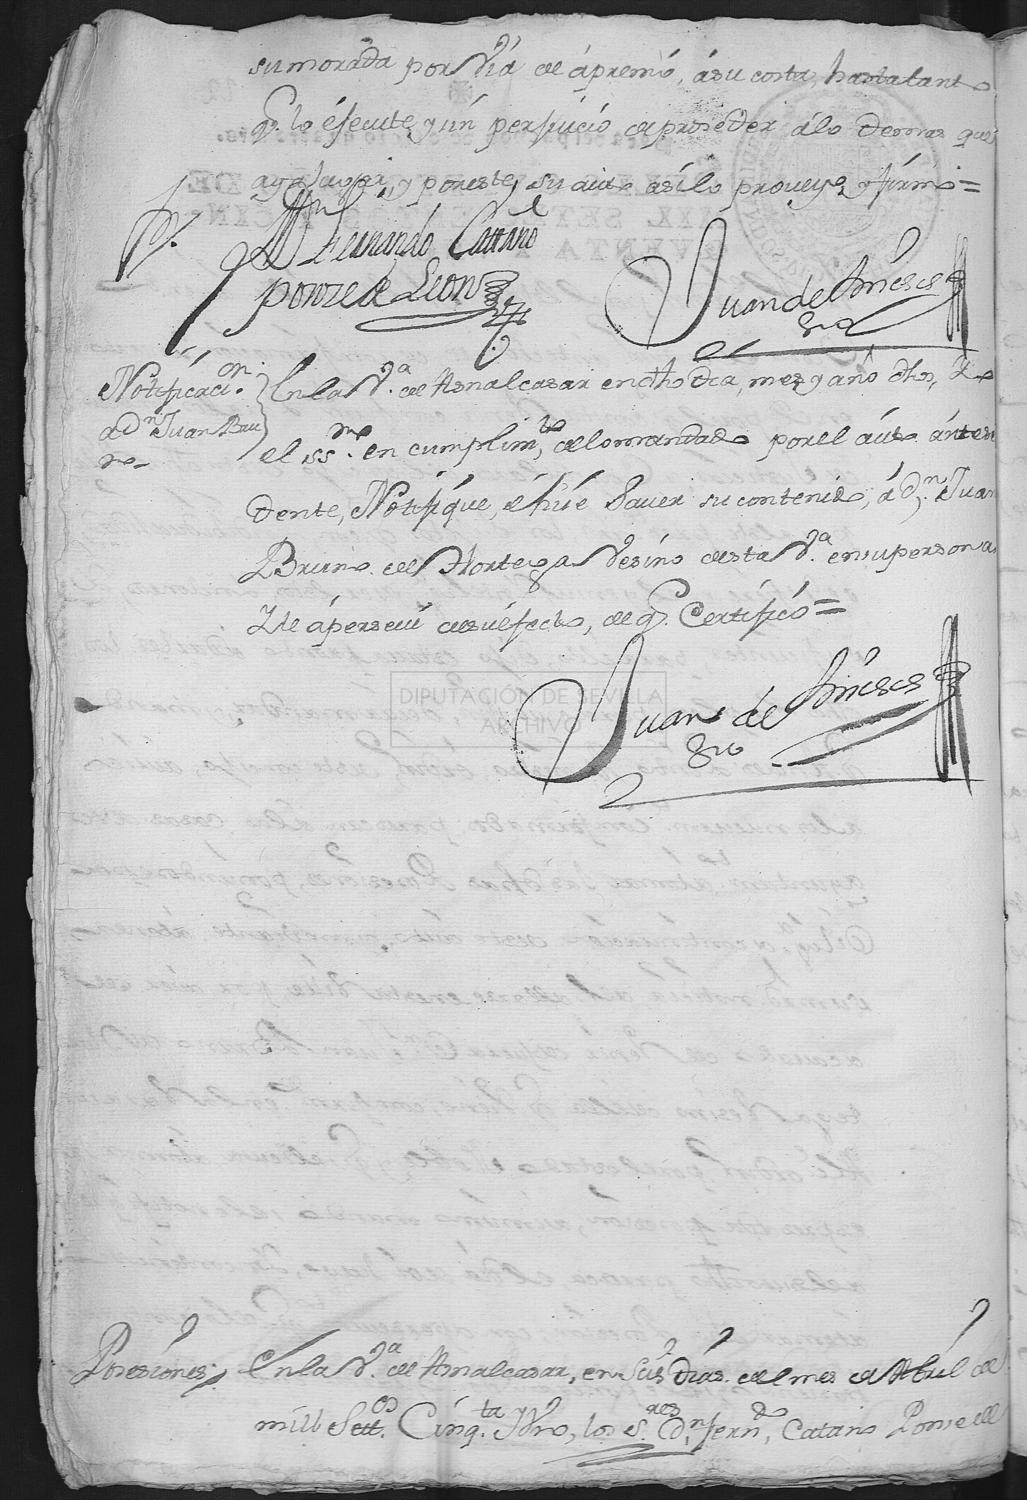 su morada por Via de ápremió, ásu costa, hasta tanto
q.e lo éfecute, y sin perjuició de proseder álo demas que
aya lugar, y por este, su auto asilo proveyo, y firmó =
D.n Fernando Cattaño
ponze de Leon
Juan de
ss.no
Notificaci.on
a D.n Juan Bru
no
En la V.a de Asnalcasar en dho dia, mes y año dhos, Yo
el ss.no en cumplim.to de lo mandado por el auto ántese
dente, Notifiqué, é hise Saver su contenido, á d.n Juan
Bruno de Hortega Vesino desta V.a en su persona
de q.e Certificó =
DIPUTACIÓN DE SEVILLA
ARCHIVO
Juan de
ss.no
Posesiones,
En la V.a de Asnalcasar, en seis dias del mes de Abril de
mill Sett.os Cinq.ta y Uno, los s.res D.n Fern.do Cataño Ponse de